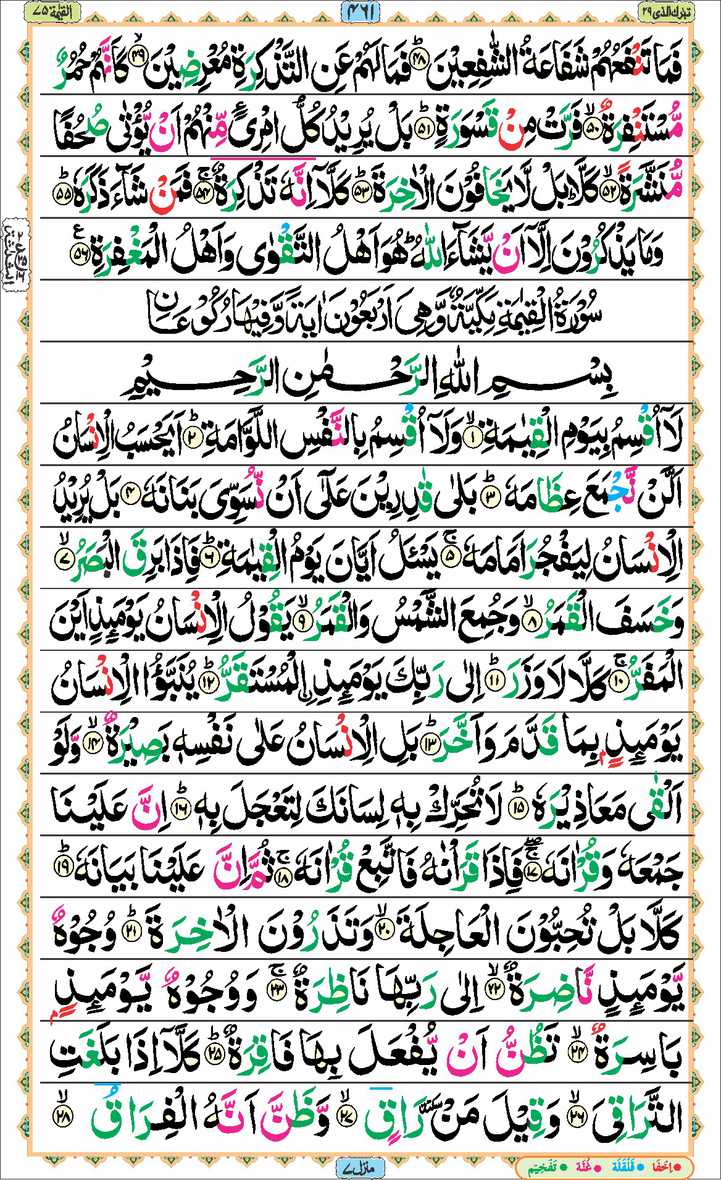 تبٰرك الذی ۲۹
۴۶۱
القیٰمة ۷۵
فَمَا تَنْفَعُهُمْ شَفَاعَةُ الشّٰفِعِیْنَ ۴۸ فَمَا لَهُمْ عَنِ التَّذْكِرَةِ مُعْرِضِیْنَ ۴۹ كَاَنَّهُمْ حُمُرٌ
مُّسْتَنْفِرَةٌ ۵۰ فَرَّتْ مِنْ قَسْوَرَةٍ ۵۱ بَلْ یُرِیْدُ كُلُّ امْرِئٍ مِّنْهُمْ اَنْ یُّؤْتٰى صُحُفًا
مُّنَشَّرَةً ۵۲ كَلَّا بَلْ لَّا یَخَافُوْنَ الْاٰخِرَةَ ۵۳ كَلَّاۤ اِنَّهٗ تَذْكِرَةٌ ۵۴ فَمَنْ شَآءَ ذَكَرَهٗ ۵۵
وَمَا یَذْكُرُوْنَ اِلَّاۤ اَنْ یَّشَآءَ اللّٰهُ هُوَ اَهْلُ التَّقْوٰى وَاَهْلُ الْمَغْفِرَةِ ۵۶
سُوْرَةُ الْقِیٰمَةِ مَكِّیَّةٌ وَّهِیَ اَرْبَعُوْنَ اٰیَةً وَّفِیْهَا رُكُوْعَانِ
بِسْمِ اللّٰهِ الرَّحْمٰنِ الرَّحِیْمِ
لَاۤ اُقْسِمُ بِیَوْمِ الْقِیٰمَةِ ۱ وَلَاۤ اُقْسِمُ بِالنَّفْسِ اللَّوَّامَةِ ۲ اَیَحْسَبُ الْاِنْسَانُ
اَلَّنْ نَّجْمَعَ عِظَامَهٗ ۳ بَلٰى قٰدِرِیْنَ عَلٰۤى اَنْ نُّسَوِّیَ بَنَانَهٗ ۴ بَلْ یُرِیْدُ
الْاِنْسَانُ لِیَفْجُرَ اَمَامَهٗ ۵ یَسْئَلُ اَیَّانَ یَوْمُ الْقِیٰمَةِ ۶ فَاِذَا بَرِقَ الْبَصَرُ ۷
وَخَسَفَ الْقَمَرُ ۸ وَجُمِعَ الشَّمْسُ وَالْقَمَرُ ۹ یَقُوْلُ الْاِنْسَانُ یَوْمَئِذٍ اَیْنَ
الْمَفَرُّ ۱۰ كَلَّا لَا وَزَرَ ۱۱ اِلٰى رَبِّكَ یَوْمَئِذِ اِ۟لْمُسْتَقَرُّ ۱۲ یُنَبَّؤُا الْاِنْسَانُ
یَوْمَئِذٍۭ بِمَا قَدَّمَ وَاَخَّرَ ۱۳ بَلِ الْاِنْسَانُ عَلٰى نَفْسِهٖ بَصِیْرَةٌ ۱۴ وَّلَوْ
اَلْقٰى مَعَاذِیْرَهٗ ۱۵ لَا تُحَرِّكْ بِهٖ لِسَانَكَ لِتَعْجَلَ بِهٖ ۱۶ اِنَّ عَلَیْنَا
جَمْعَهٗ وَقُرْاٰنَهٗ ۱۷ فَاِذَا قَرَاْنٰهُ فَاتَّبِعْ قُرْاٰنَهٗ ۱۸ ثُمَّ اِنَّ عَلَیْنَا بَیَانَهٗ ۱۹
كَلَّا بَلْ تُحِبُّوْنَ الْعَاجِلَةَ ۲۰ وَتَذَرُوْنَ الْاٰخِرَةَ ۲۱ وُجُوْهٌ
یَّوْمَئِذٍ نَّاضِرَةٌ ۲۲ اِلٰى رَبِّهَا نَاظِرَةٌ ۲۳ وَوُجُوْهٌ یَّوْمَئِذٍۭ
بَاسِرَةٌ ۲۴ تَظُنُّ اَنْ یُّفْعَلَ بِهَا فَاقِرَةٌ ۲۵ كَلَّاۤ اِذَا بَلَغَتِ
التَّرَاقِیَ ۲۶ وَقِیْلَ مَنْ رَاقٍ ۲۷ وَّظَنَّ اَنَّهُ الْفِرَاقُ ۲۸
منزل ۷
اخفا • قلقلة • غنة • تفخیم